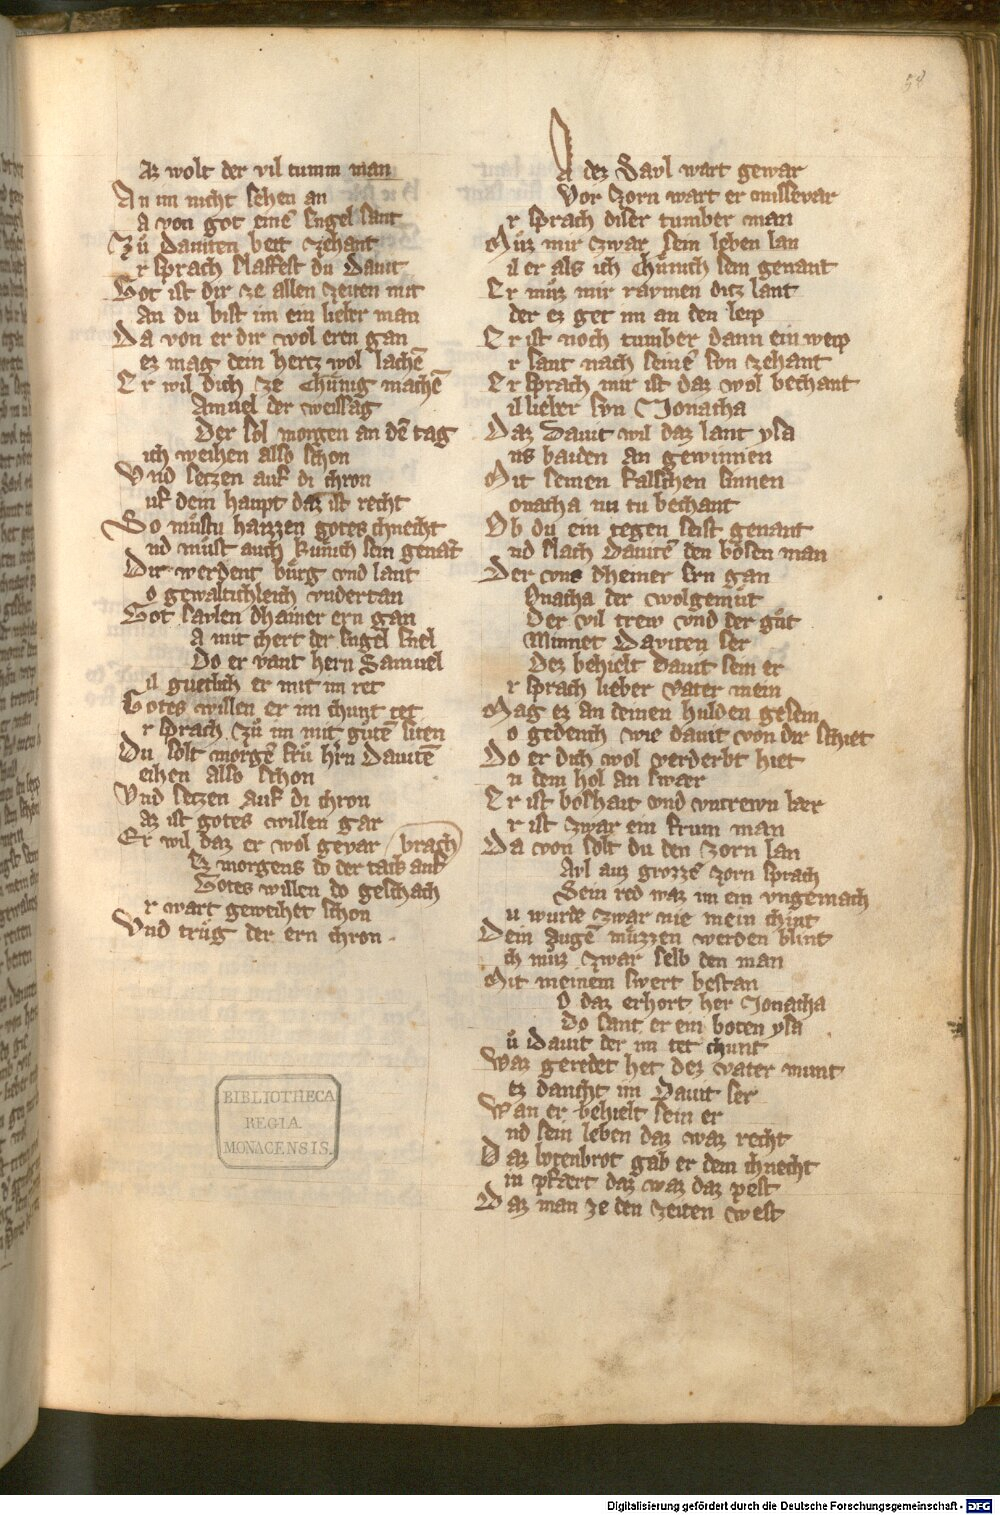 58
az wolt der vil tumm man
An im nicht sehen an
a von got einē engel sant
Zů Dauiten bett zehant
r sprach slaffest du Dauit
Got ist dir ze allen zeiten mit
An du bist im ein lieber man
Da von er dir wol eren gan
ez mag dein hertz wol lachē
Er wil dich ze chünig machē
Amuel der weissag
Der sol morgen an dē tag
ich weihen also schon
Vnd setzen auf di chron
uf dein haupt daz ist recht
So můstu haizzen gotes chnecht
nd můst auch kunich sein genāt
Dir werdent bürg vnd lant
o gewaltichleich vndertan
Got saulen dhainer ern gan
A mit chert der engel snel
Do er vant hern Samuel
il guetlich er mit im ret
Gotes willen er im chunt tet
r sprach zů im mit gutē siten
Du solt morgē frů hr̄n Dauitē
eihen also schon
Vnd setzen auf di chron
az ist gotes willen gar
Er wil daz er wol gevar brach
Ez morgens do der tack auf
Gotes willen do geschach
r wart geweihet schon
Vnd trůg der ern chron.
A dez Saul wart gewar
Vor zorn wart er missevar
r sprach diser tumber man
Můz mir zwar sein leben lan
il er als ich chünich sein genant
Er můz mir raymen ditz lant
der ez get im an den leip
Er ist noch tumber dann ein weip
r sant nach seinē syn zehant
Er sprach mir ist daz wol bechant
il lieber syn Jonatha
Daz Dauit wil daz lant ysa
ns baiden an gewinnen
Mit seinen falschen sinnen
onatha nu tu bechant
Ob du ein tegen seist genant
nd slach Dauitē den bösen man
Der vns dheiner ern gan
Onatha der wolgemůt
Der vil trew vnd der gůt
Minnet Dauiten ser
Dez behielt Dauit sein er
r sprach lieber vater mein
Mag ez an deinen hulden gesein
o gedench wie dauit von dir schiet
Do er dich wol verderbt hiet
n dem hol an swær
Er ist boshait vnd vntrewn lær
r ist zwar ein frum man
Da von solt du den zorn lan
Avl auz grozzē zorn sprach
Sein red waz im ein vngemach
u wurde zwar nie mein chint
Dein augē můzzen werden blint
ch můz zwar selb den man
Mit meinem swert bestan
O daz erhort her Jonatha
Do sant er ein boten ysa
ů Dauit der im tet chunt
Waz geredet het dez vater munt
ez dancht im Dauit ser
Wan er behielt sein er
nd sein leben daz waz recht
Daz botenbrot gab er dem chnecht
in pfært daz waz daz pest
Daz man ze den zeiten west
BIBLIOTHECA
REGIA
MONACENSIS.
Digitalisierung gefördert durch die Deutsche Forschungsgemeinschaft - DFG